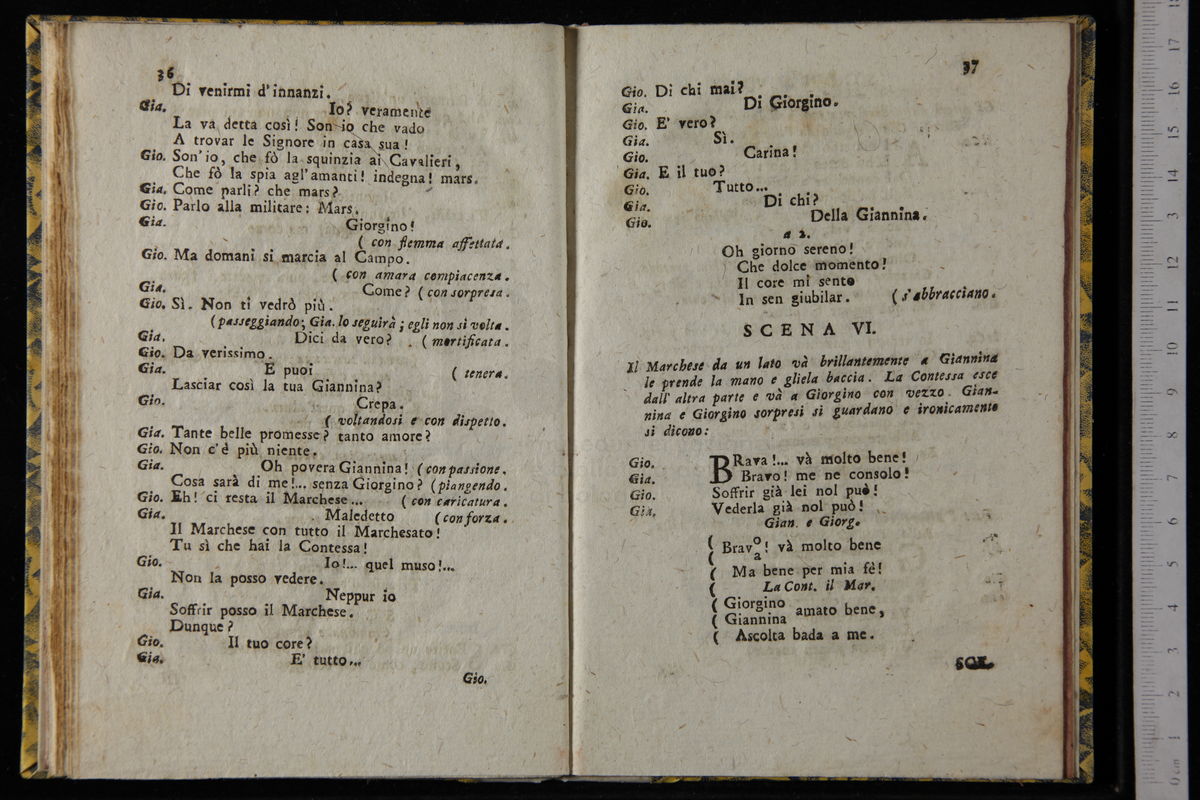 36
Di venirmi d'innanzi.
Gia. Io? veramente
La va detta così! Son io che vado
A trovar le Signore in casa sua!
Gio. Son'io, che fò la squinzia ai Cavalieri,
Che fò la spia agl'amanti! indegna! mars.
Gia. Come parli? che mars?
Gio. Parlo alla militare: Mars.
Gia. Giorgino!
( con flemma affettata.
Gio. Ma domani si marcia al Campo.
( con amara compiacenza.
Gia. Come? ( con sorpresa.
Gio. Sì. Non ti vedrò più.
(passeggiando; Gia. lo seguirà; egli non si volta.
Gia. Dici da vero? . ( mortificata.
Gio. Da verissimo.
Gia. E puoi ( tenera.
Lasciar così la tua Giannina?
Gio. Crepa.
( voltandosi e con dispetto.
Gia. Tante belle promesse? tanto amore?
Gio. Non c'è più niente.
Gia. Oh povera Giannina! (con passione.
Cosa sarà di me!... senza Giorgino? (piangendo.
Gio. Eh! ci resta il Marchese... ( con caricatura.
Gia. Maledetto (con forza.
Il Marchese con tutto il Marchesato!
Tu sì che hai la Contessa!
Gio. Io!... quel muso!...
Non la posso vedere.
Gia. Neppur io
Soffrir posso il Marchese.
Dunque?
Gio. Il tuo core?
Gia. E' tutto...
Gio.
37
Gio. Di chi mai?
Gia. Di Giorgino.
Gio. E' vero?
Gia. Sì.
Gio. Carina!
Gia. E il tuo?
Gio. Tutto...
Gia. Di chi?
Gio. Della Giannina.
a 2.
Oh giorno sereno!
Che dolce momento!
Il core mi sento
In sen giubilar. (s'abbracciano.
SCENA VI.
Il Marchese da un lato và brillantemente a Giannina
le prende la mano e gliela baccia. La Contessa esce
dall' altra parte e và a Giorgino con vezzo. Gian-
nina e Giorgino sorpresi si guardano e ironicamente
si dicono:
Gio. BRava!... và molto bene!
Gia. Bravo! me ne consolo!
Gio. Soffrir già lei nol può!
Gia. Vederla già nol può!
Gian. e Giorg.
( Bravo! và molto bene
( a
( Ma bene per mia fè!
( La Cont. il Mar.
( Giorgino amato bene,
( Giannina
( Ascolta bada a me.